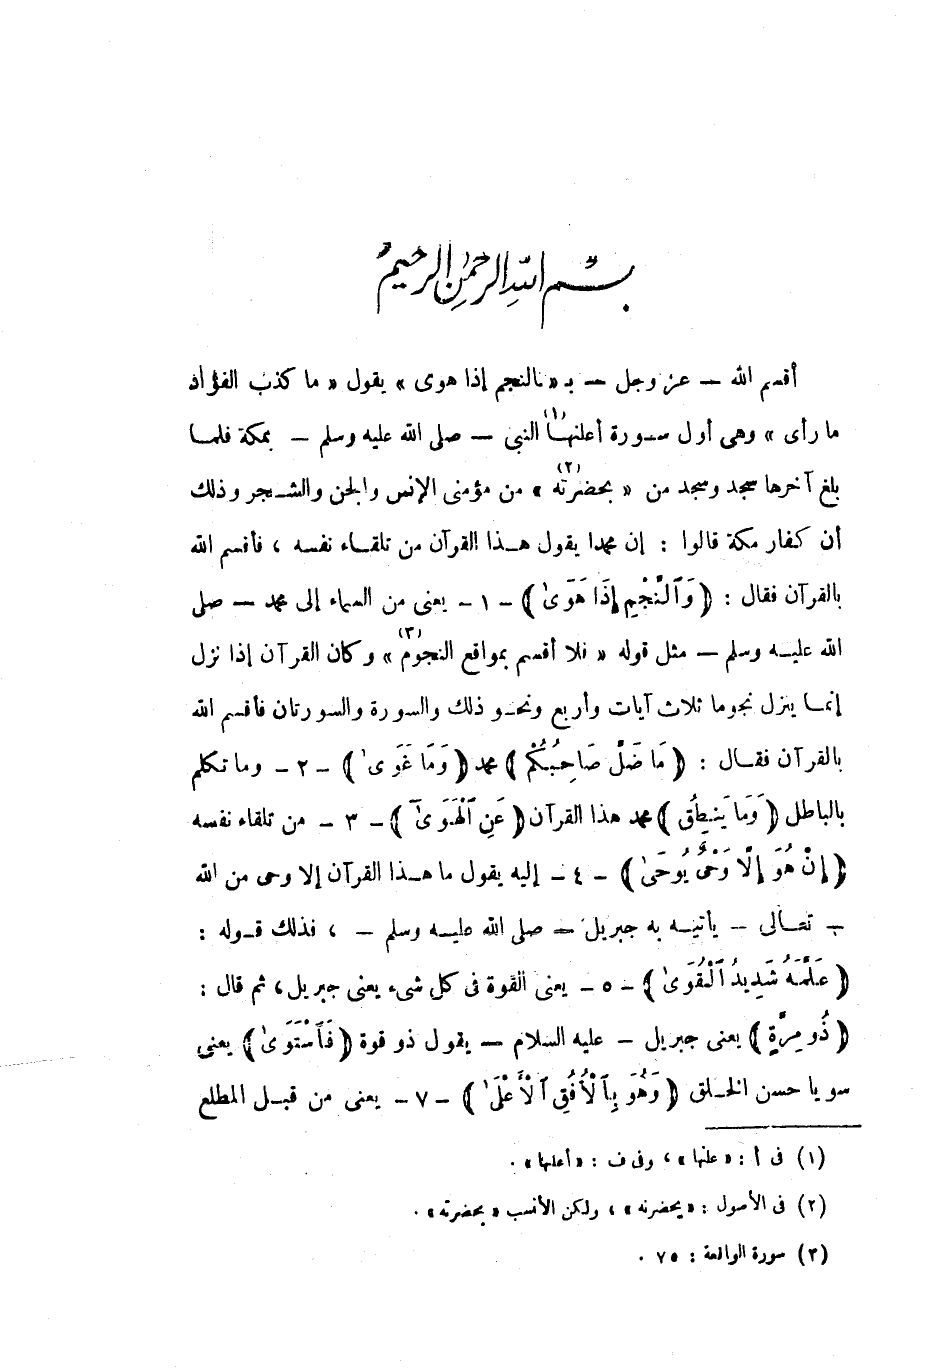 بسم الله الرحمن الرحيم
أقسم الله — عز وجل — بـ «النجم إذا هوى» يقول « ما كذب الفؤاد
ما رأى » وهى أول سورة أعلنها(١) النبى — صلى الله عليه وسلم — بمكة فلما
بلغ آخرها سجد وسجد من « بحضرته(٢) » من مؤمنى الإنس والجن والشجر وذلك
أن كفار مكة قالوا : إن محمدا يقول هذا القرآن من تلقاء نفسه ، فأقسم الله
بالقرآن فقال : ﴿ وَٱلنَّجْمِ إِذَا هَوَىٰ ﴾ — ١ — يعنى من السماء إلى محمد — صلى
الله عليه وسلم — مثل قوله « فلا أقسم بمواقع النجوم(٣) » وكان القرآن إذا نزل
إنما ينزل نجوما ثلاث آيات وأربع ونحو ذلك والسورة والسورتان فأقسم الله
بالقرآن فقال : ﴿ مَا ضَلَّ صَاحِبُكُمْ ﴾ محمد ﴿ وَمَا غَوَىٰ ﴾ — ٢ — وما تكلم
بالباطل ﴿ وَمَا يَنطِقُ ﴾ محمد هذا القرآن ﴿ عَنِ ٱلْهَوَىٰٓ ﴾ — ٣ — من تلقاء نفسه
﴿ إِنْ هُوَ إِلَّا وَحْىٌ يُوحَىٰ ﴾ — ٤ — إليه يقول ما هذا القرآن إلا وحى من الله
— تعالى — يأتيه به جبريل — صلى الله عليه وسلم — ، فذلك قوله :
﴿ عَلَّمَهُ شَدِيدُ ٱلْقُوَىٰ ﴾ — ٥ — يعنى القوة فى كل شىء يعنى جبريل ، ثم قال :
﴿ ذُو مِرَّةٍ ﴾ يعنى جبريل — عليه السلام — يقول ذو قوة ﴿ فَٱسْتَوَىٰ ﴾ يعنى
سويا حسن الخلق ﴿ وَهُوَ بِٱلْأُفُقِ ٱلْأَعْلَىٰ ﴾ — ٧ — يعنى من قبل المطلع
(١) فى أ : « علنها » ، وفى ف : « أعلها » .
(٢) فى الأصول : « يحضرنه » ، ولكن الأنسب « بحضرته » .
(٣) سورة الواقعة : ٧٥ .